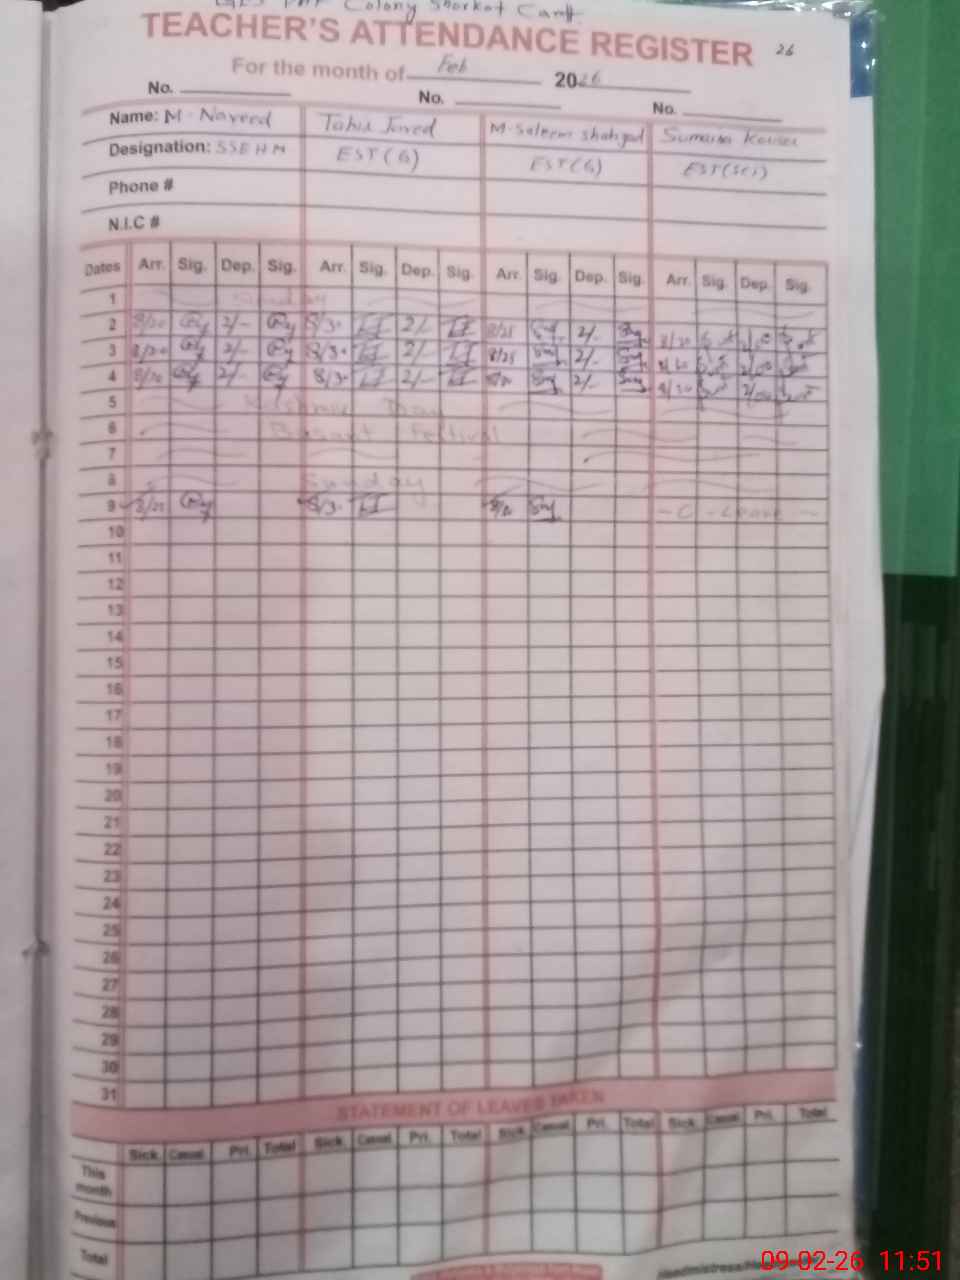 Colony Shorkot Cantt
TEACHER'S ATTENDANCE REGISTER 26
For the month of Feb 2026
No. No. No.
Name: M. Naveed Tahir Javed M. Saleem Shahzad Sumaira Kousar
Designation: SSE HM EST (G) EST (G) EST (Sci)
Phone #
N.I.C #
Dates Arr. Sig. Dep. Sig. Arr. Sig. Dep. Sig. Arr. Sig. Dep. Sig. Arr. Sig. Dep. Sig.
1 Sunday
2 8/20 2/- 8/30 2/- 8/25 2/- 8/20 2/00
3 8/20 2/- 8/30 2/- 8/25 2/- 8/20 2/00
4 8/20 2/- 8/30 2/- 2/- 8/20 2/00
5 Kashmir Day
6 Basant Festival
7
8 Sunday
9 8/20 8/30 - C - Leave -
10
11
12
13
14
15
16
17
18
19
20
21
22
23
24
25
26
27
28
29
30
31
STATEMENT OF LEAVES TAKEN
Sick Casual Pri. Total Sick Casual Pri. Total Sick Casual Pri. Total Sick Casual Pri. Total
This month
Previous
Total
09-02-26 11:51